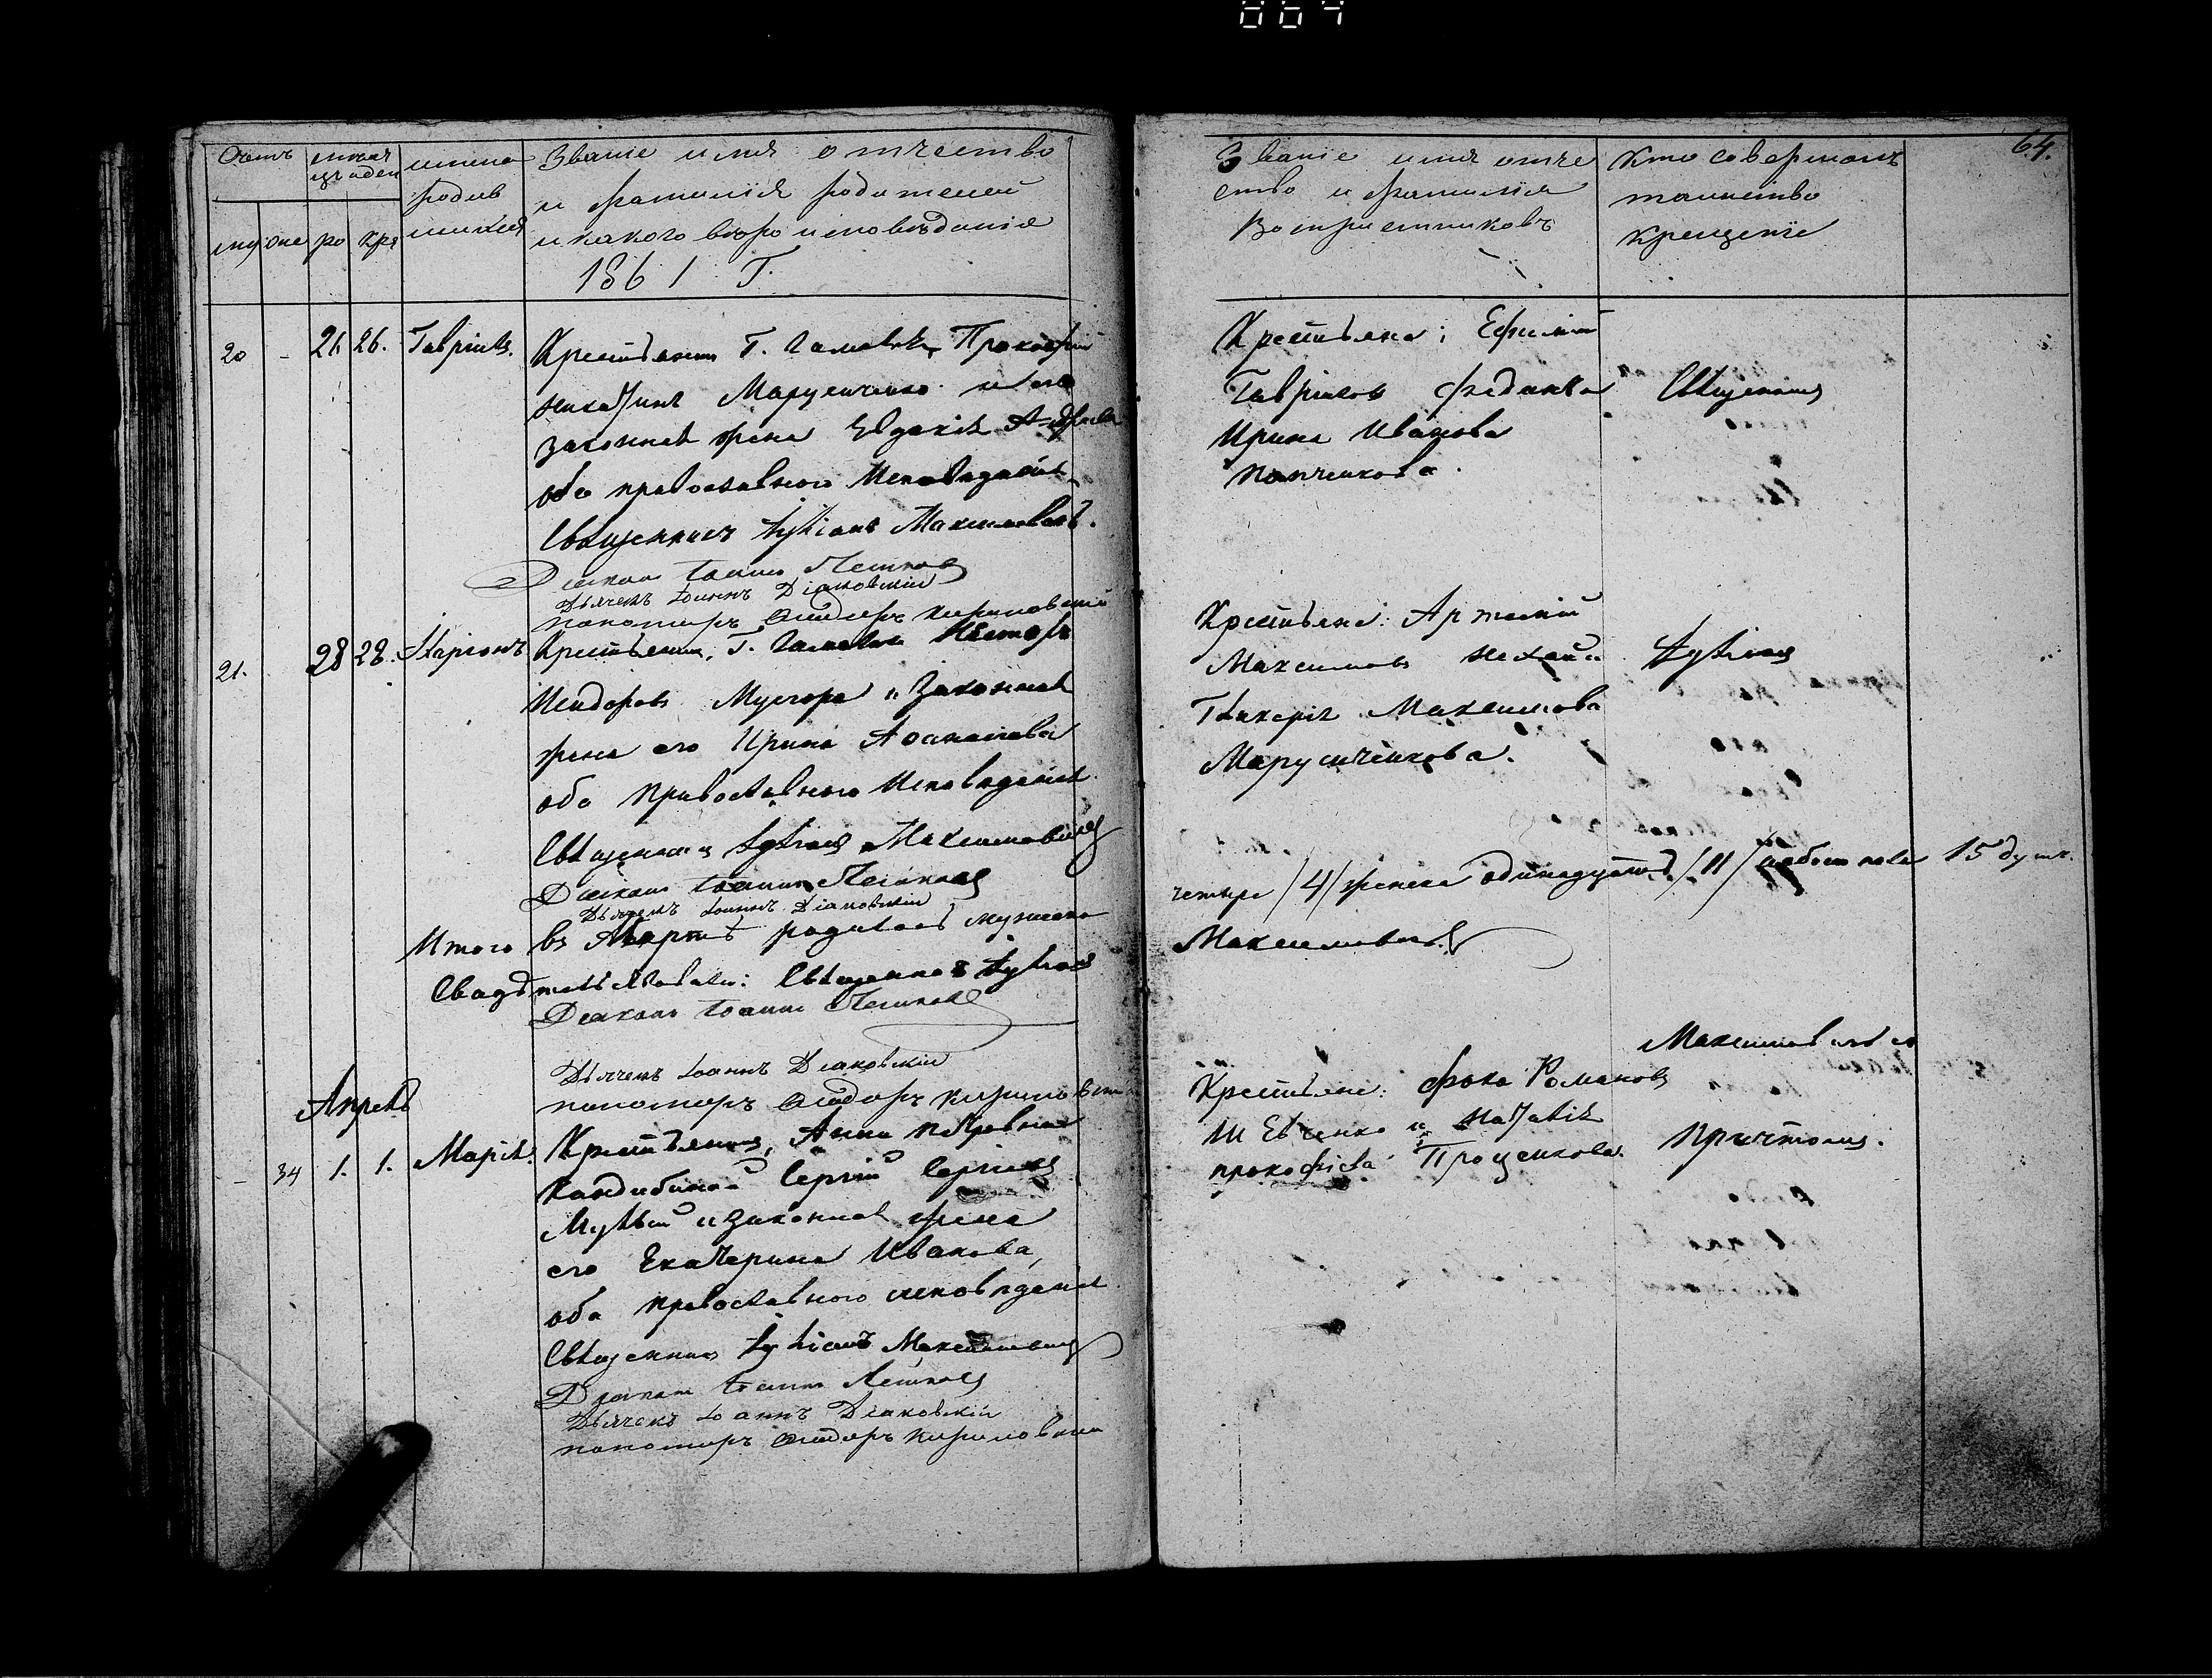 064
64.
Счетъ
мѣсяць и день
имена родив шихся
Званіе имя отчество
и фамилія родителей
и какого вѣро исповѣданія
1861 Г.
му
же
ро
кре
Званіе имя отче
ство и фамилія
Воспріемниковъ
Кто совершалъ
таинство
крещеніе
20 - 26 26. Гавріилъ.
Крестьянинъ Г. Прокофій
Марусиченко и его
законная жена Евдокія
оба православнаго Исповѣданія
Священникъ Лукіанъ Максимовичъ.
Діаконъ Іоаннъ
Дьячекъ Іоаннъ Діаковскій
пономарь Сидоръ Кириловскій
Крестьяне: Ефимій
Гавріиловъ
Ирина Иванова
Панченкова.
Священникъ
21. 28 28. Иларіонъ
Крестьянинъ Г. Несторъ
Исидоровъ и законная
жена его Ирина Афанасіева
оба Православнаго Исповѣданія
Священникъ Лукіанъ Максимовичъ
Діаконъ Іоаннъ
Дьячекъ Іоаннъ Діаковскій
Крестьяне: Артемій
Максимовъ
Гликерія Максимова
Марусиченкова.
Лукіанъ
Итого въ Мартѣ родилось мужеска
четыре /4/ женска одинадцать /11/ обоего пола 15 душъ.
Свидѣтельствовали: Священникъ Лукіанъ
Максимовичъ
Діаконъ Іоаннъ
Дьячекъ Іоаннъ Діаковскій
пономарь Сидоръ Кириловскій
Апрель
- 34 1. 1. Марія.
Крестьянинъ, Анны Петровны
Кандибиной Сергій Сергіевъ
и законная жена
его Екатерина Иванова,
оба православнаго исповѣданія
Священникъ Лукіанъ Максимовичъ
Діаконъ Іоаннъ
Дьячекъ Іоаннъ Діаковскій
пономарь Сидоръ Кириловскій
Крестьяне: Фока Романовъ
Шевченко и Наталія
прокофіева Проценкова.
Максимовичъ съ
Причтомъ.